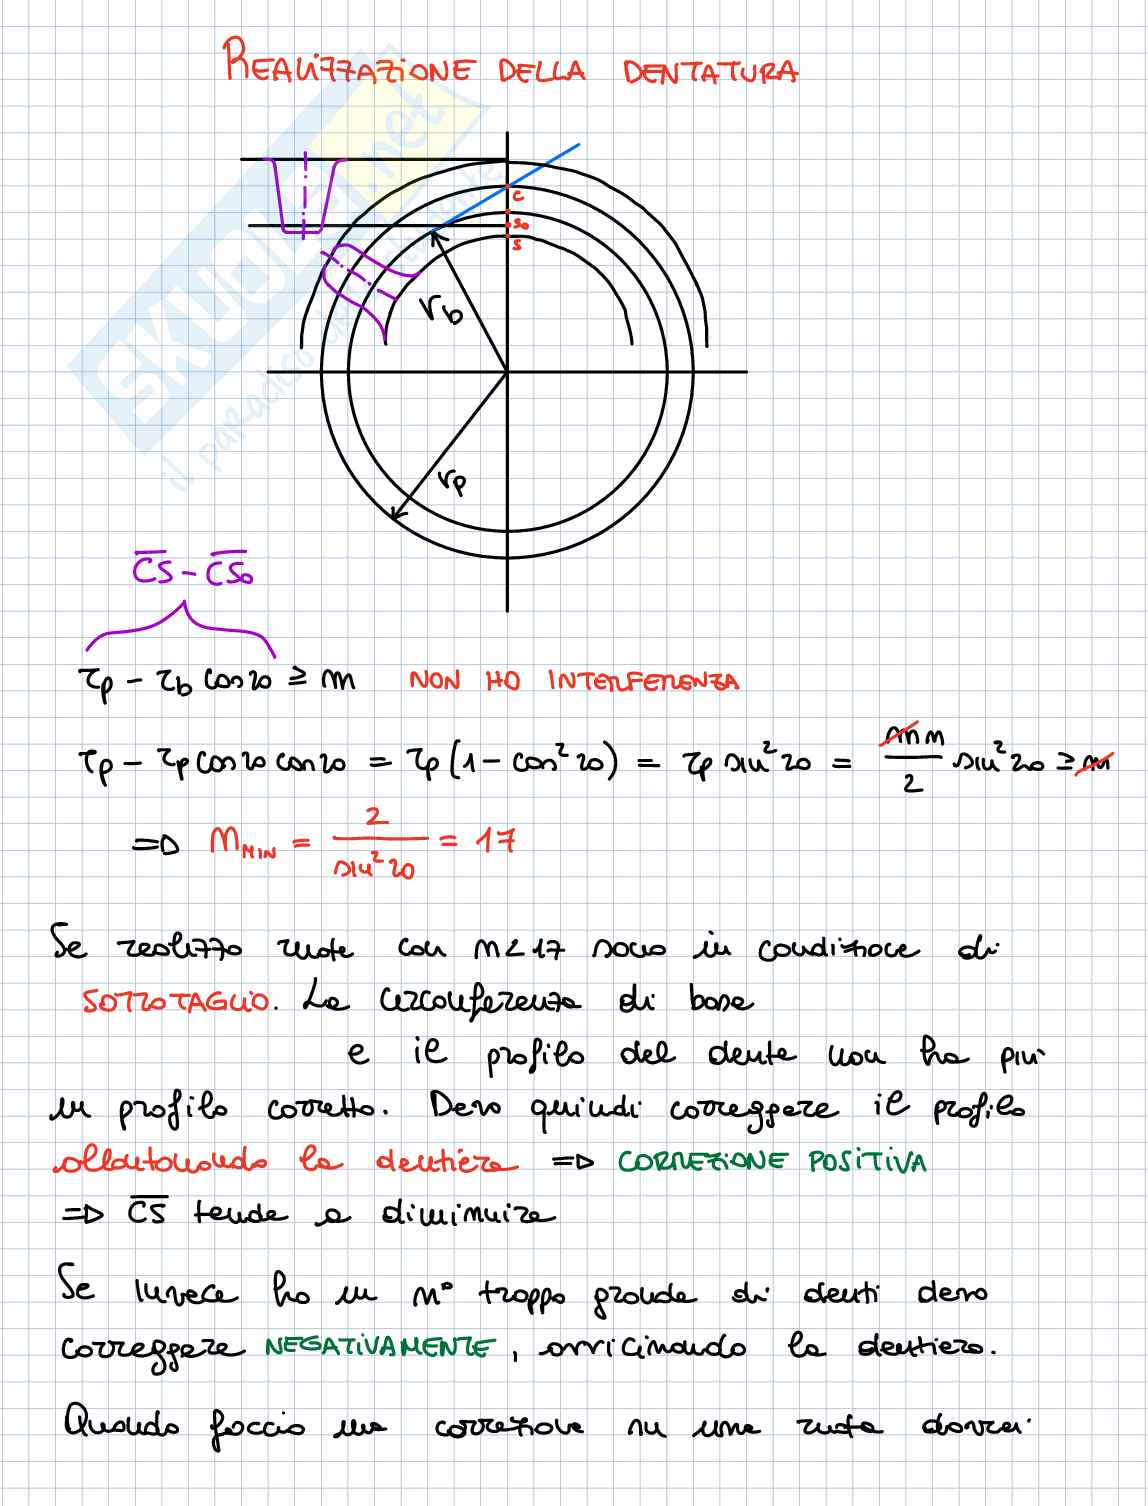 REALIZZAZIONE DELLA DENTATURA
SKUOLA.net
il paradiso dello studente
C
S₀
S
r_b
r_p
C̅S̅ - C̅S̅₀
r_p - r_b cos20 ≥ m NON HO INTERFERENZA
r_p - r_p cos20 cos20 = r_p (1 - cos² 20) = r_p sin² 20 = mn/2 sin² 20 ≥ m
=> n_MIN = 2/sin² 20 = 17
Se realizzo ruote con n < 17 sono in condizione di
SOTTOTAGLIO. La circonferenza di base
e il profilo del dente non ha più
un profilo corretto. Devo quindi correggere il profilo
allontanando la dentiera => CORREZIONE POSITIVA
=> C̅S̅ tende a diminuire
Se invece ho un n° troppo grande di denti devo
correggere NEGATIVAMENTE, avvicinando la dentiera.
Quando faccio una correzione su una ruota dovrei